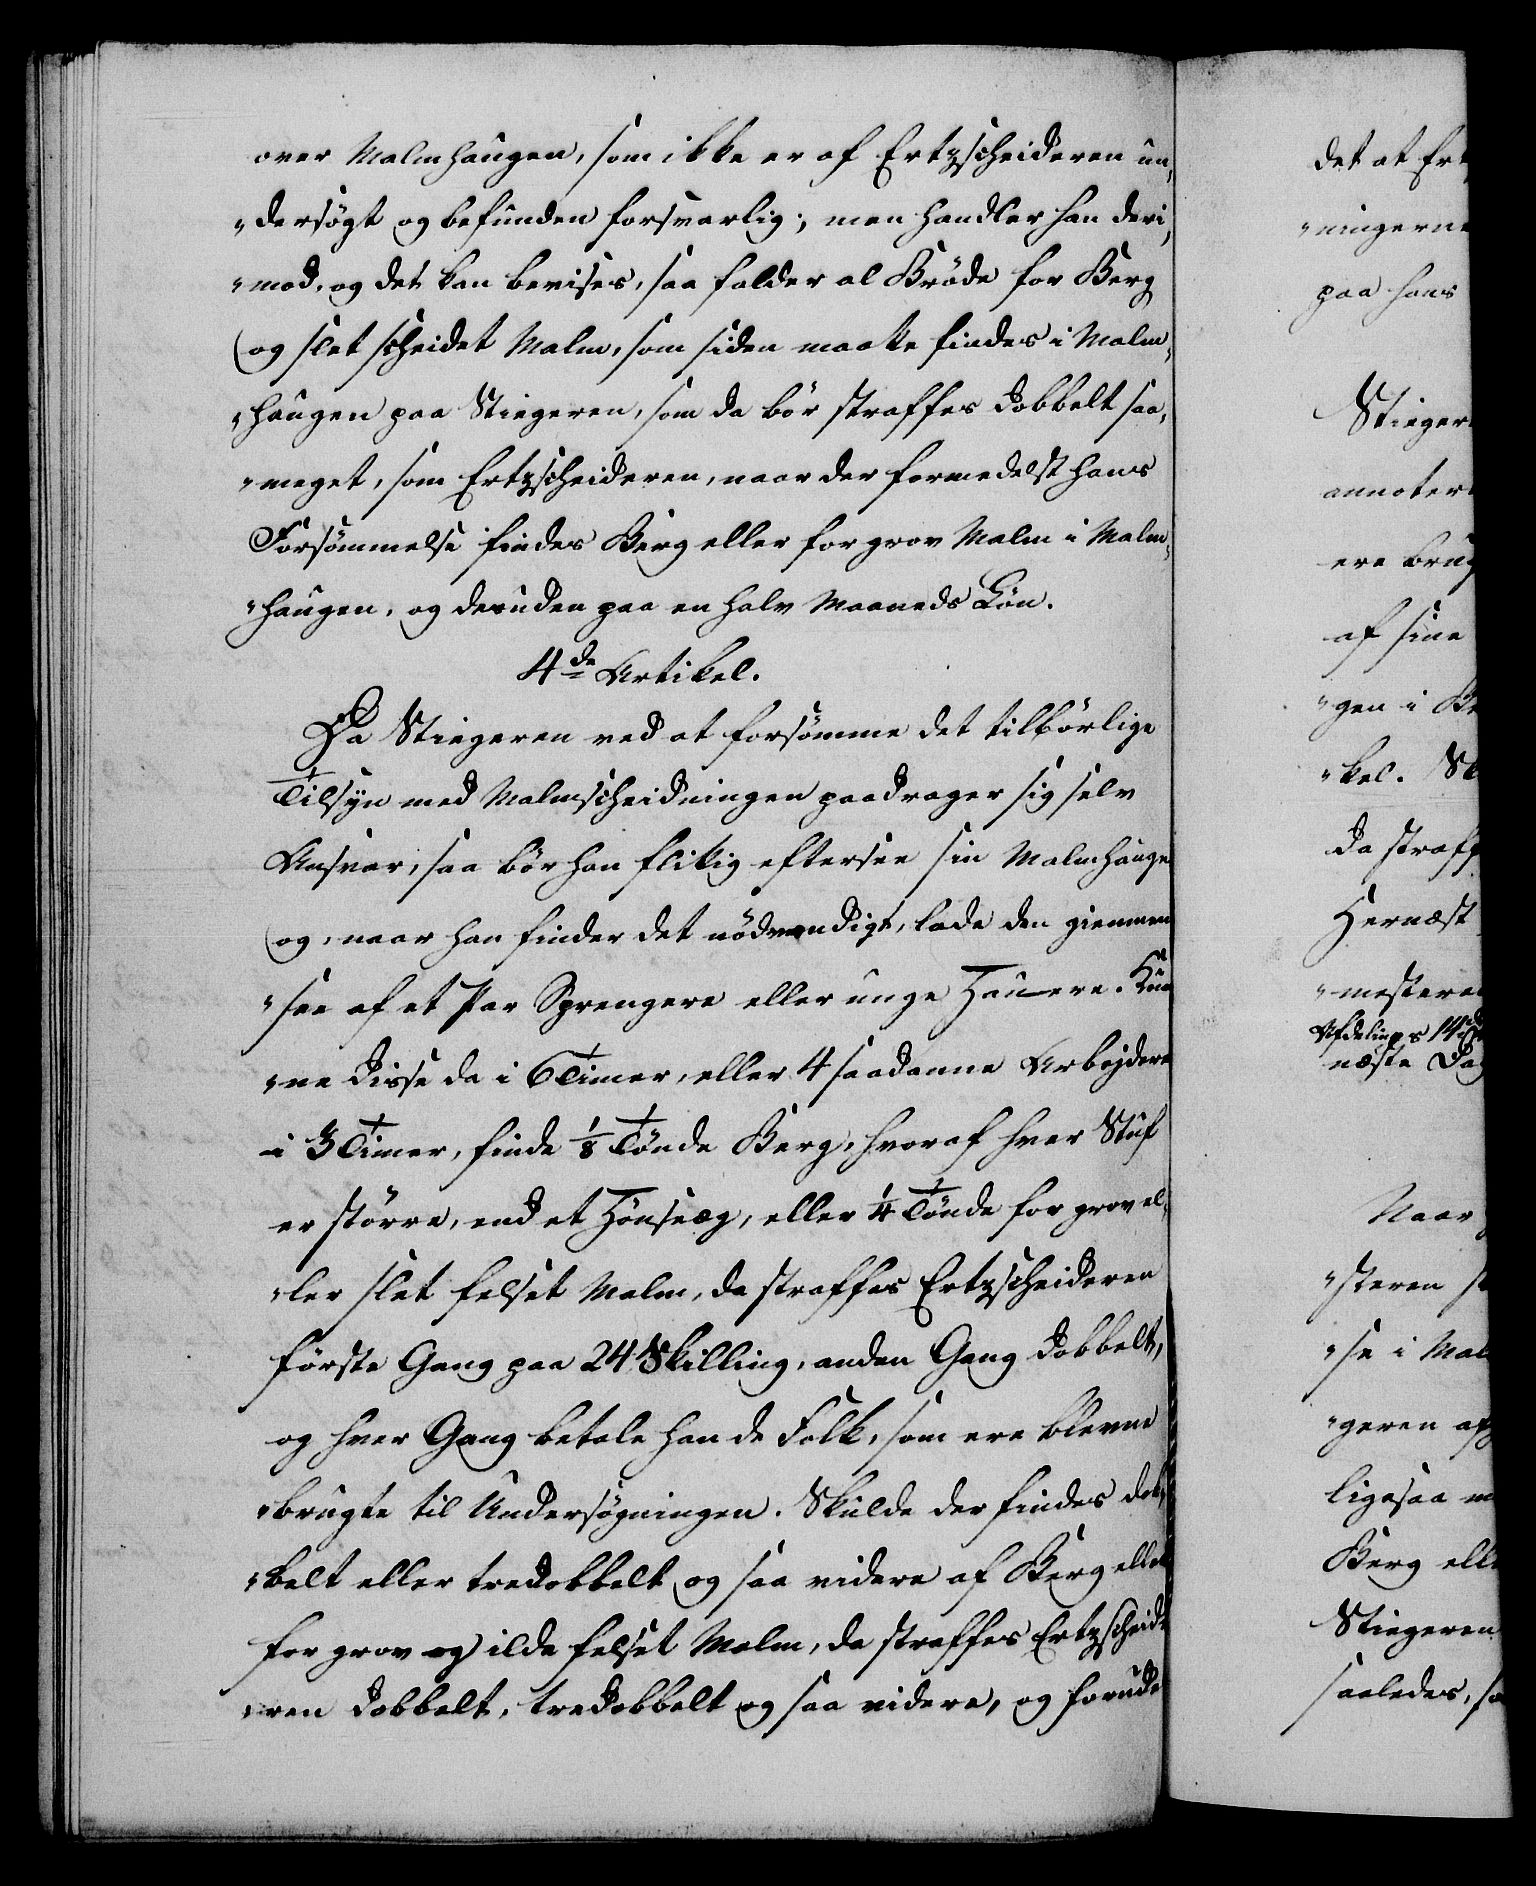 over Malmhaugen, som ikke er af Ertzscheideren un„
„dersøgt og befunden forsvarlig; men handler han deri„
„mod, og det kan bevises, saa falder al Brøde for Berg
og slet scheidet Malm, som siden maatte findes i Malm„
„haugen paa Stiegeren, som da bør straffes dobbelt saa„
„meget, som Ertzscheideren, naar der formedelst hans
Forsømmelse findes Berg eller for grov Malm i Malm„
„haugen, og desuden paa en halv Maaneds Løn.
4de Artikel.
Da Stiegeren ved at forsømme det tilbørlige
Tilsyn med Malmscheidningen paadrager sig selv
Ansvar, saa bør han flitig eftersee sin Malmhauge
og, naar han finder det nødvendigt, lade den giennem
„see af et Par Sprengere eller unge Hauere. Kun
„ne disse da i 6 Timer, eller 4 saadanne Arbejdere
i 3 Timer, finde 1/8 Tønde Berg, hvoraf hver Stuf
er større, end et Hønseæg, eller 1/4 Tønde for grov el„
„ler slet felset Malm, da straffes Ertzscheideren
første Gang paa 24 Skilling, anden Gang dobbelt,
og hver Gang betale han de Folk, som ere blevne
„brugte til Undersøgningen. Skulde der findes dob„
„belt eller tredobbelt og saa videre af Berg eller
for grov og ilde felset Malm, da straffes Ertzscheide
„ren dobbelt, tredobbelt og saa videre, og foruden
det at Ert
„ningerne
paa hans
Stieger
annoter
ere brug
af sine
„gen i Be
„kel. Sk
da straff
Hernæst
„mesteren
Afdelings 14de
næste Dag
Naar
„steren
„se i Mal
„geren af
ligesaa
Berg elle
Stiegeren
saaledes, so